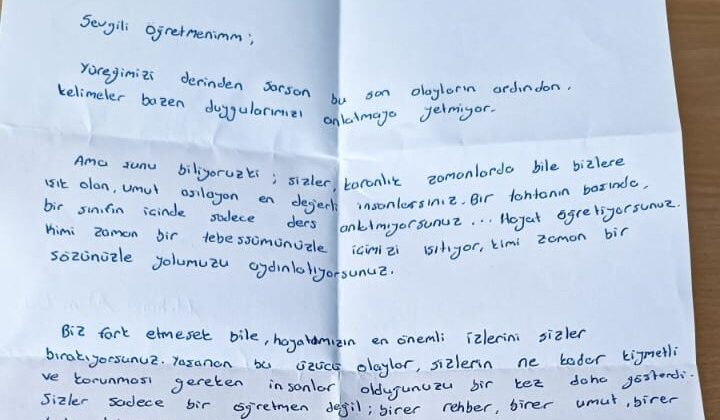 Sevgili Öğretmenimm;
Yüreğimizi derinden sarsan bu son olayların ardından.
kelimeler bazen duygularımızı anlatmaya yetmiyor.
Ama şunu biliyoruzki; sizler, karanlık zamanlarda bile bizlere
ışık olan, umut aşılayan en değerli insanlarsınız. Bir tahtanın başında,
bir sınıfın içinde sadece ders anlatmıyorsunuz... Hayat öğretiyorsunuz.
Kimi zaman bir tebessümünüzle içimizi ısıtıyor, kimi zaman bir
sözünüzle yolumuzu aydınlatıyorsunuz.
Biz fark etmesek bile, hayatımızın en önemli izlerini sizler
bırakıyorsunuz. Yaşanan bu üzücü olaylar, sizlerin ne kadar kıymetli
ve korunması gereken insanlar olduğunuzu bir kez daha gösterdi.
Sizler sadece bir öğretmen değil; birer rehber, birer umut, birer